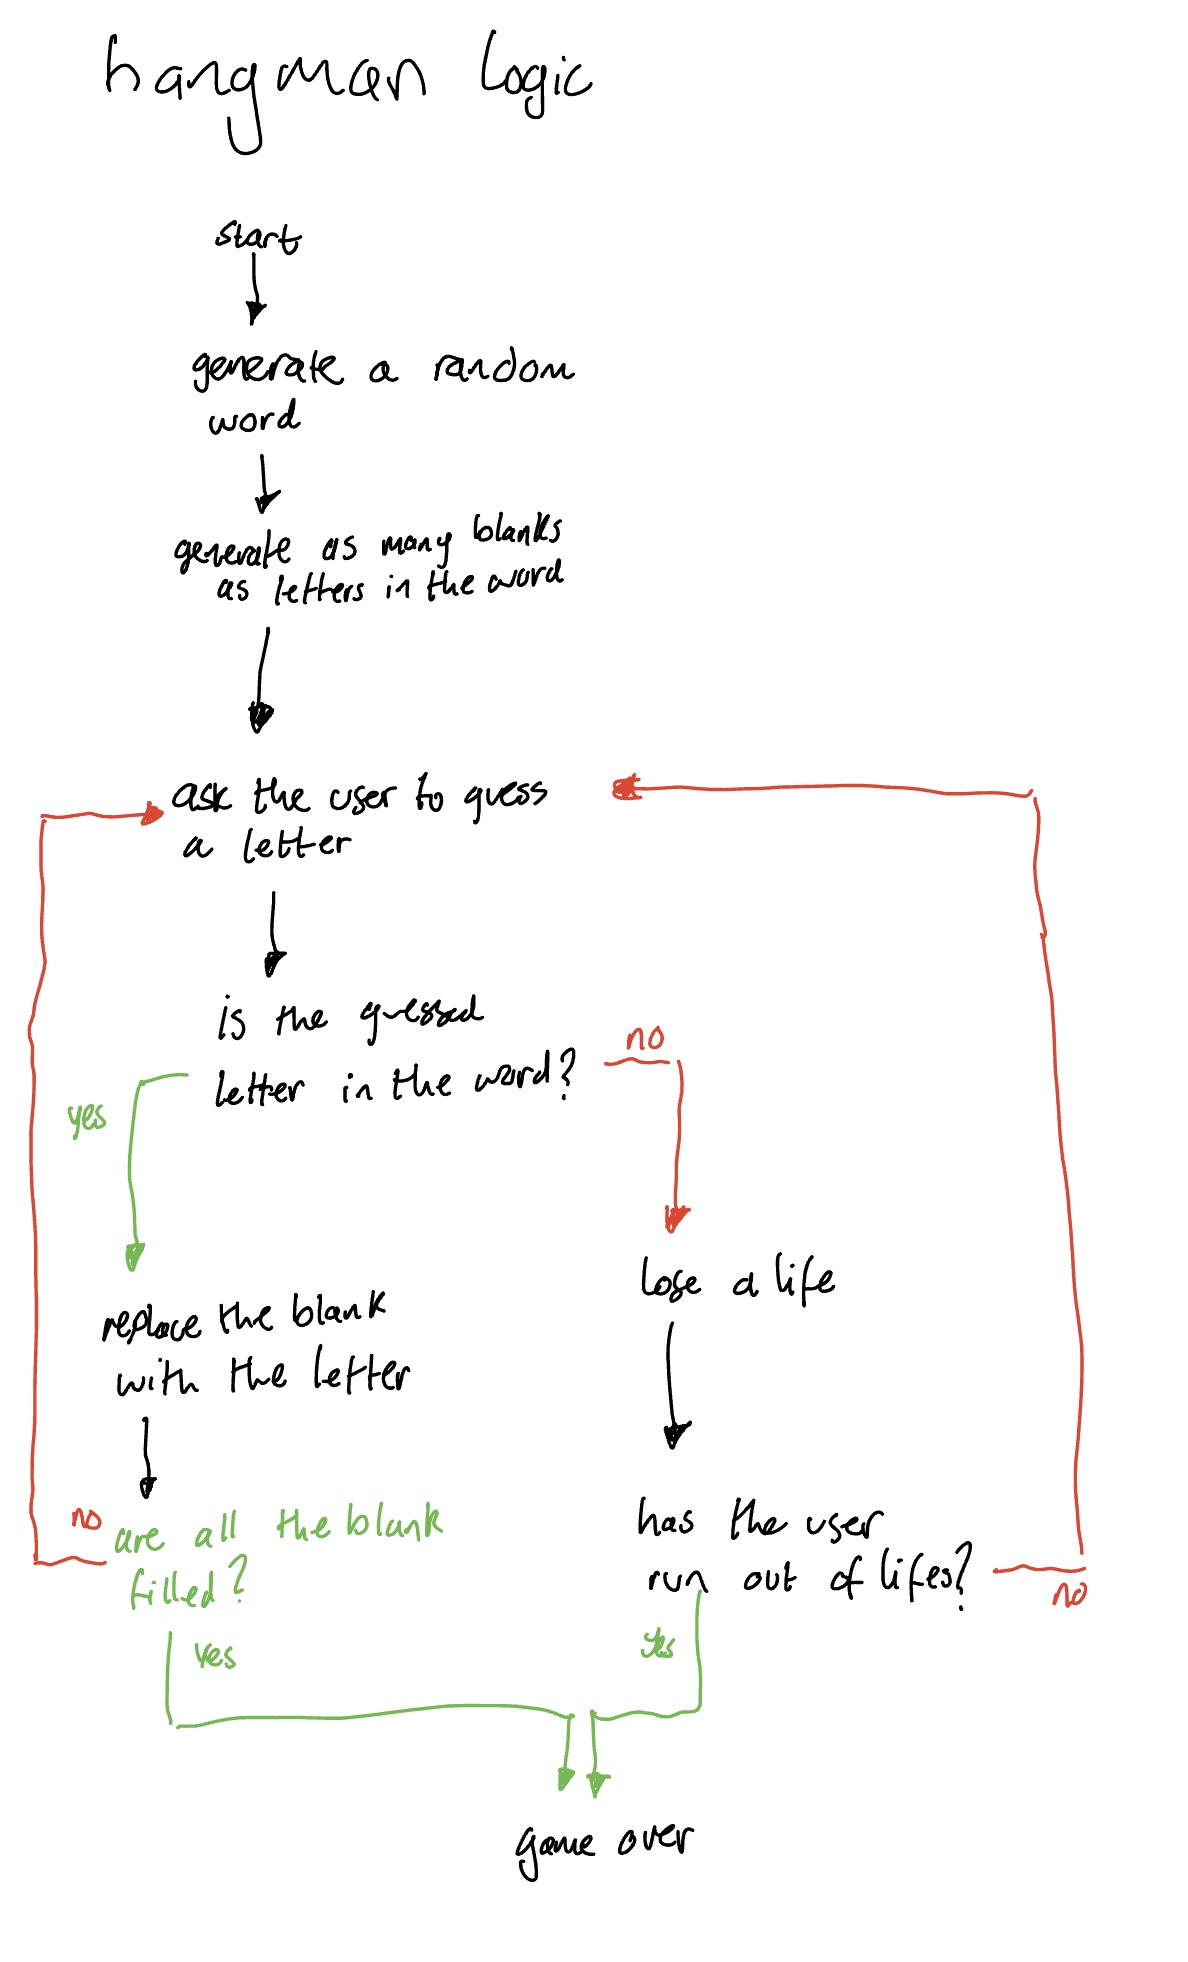 hangman logic
start
generate a random
word
generate as many blanks
as letters in the word
ask the user to guess
a letter
is the guessed
letter in the word?
no
yes
lose a life
replace the blank
with the letter
no
are all the blank
filled?
has the user
run out of lifes?
no
yes
yes
game over